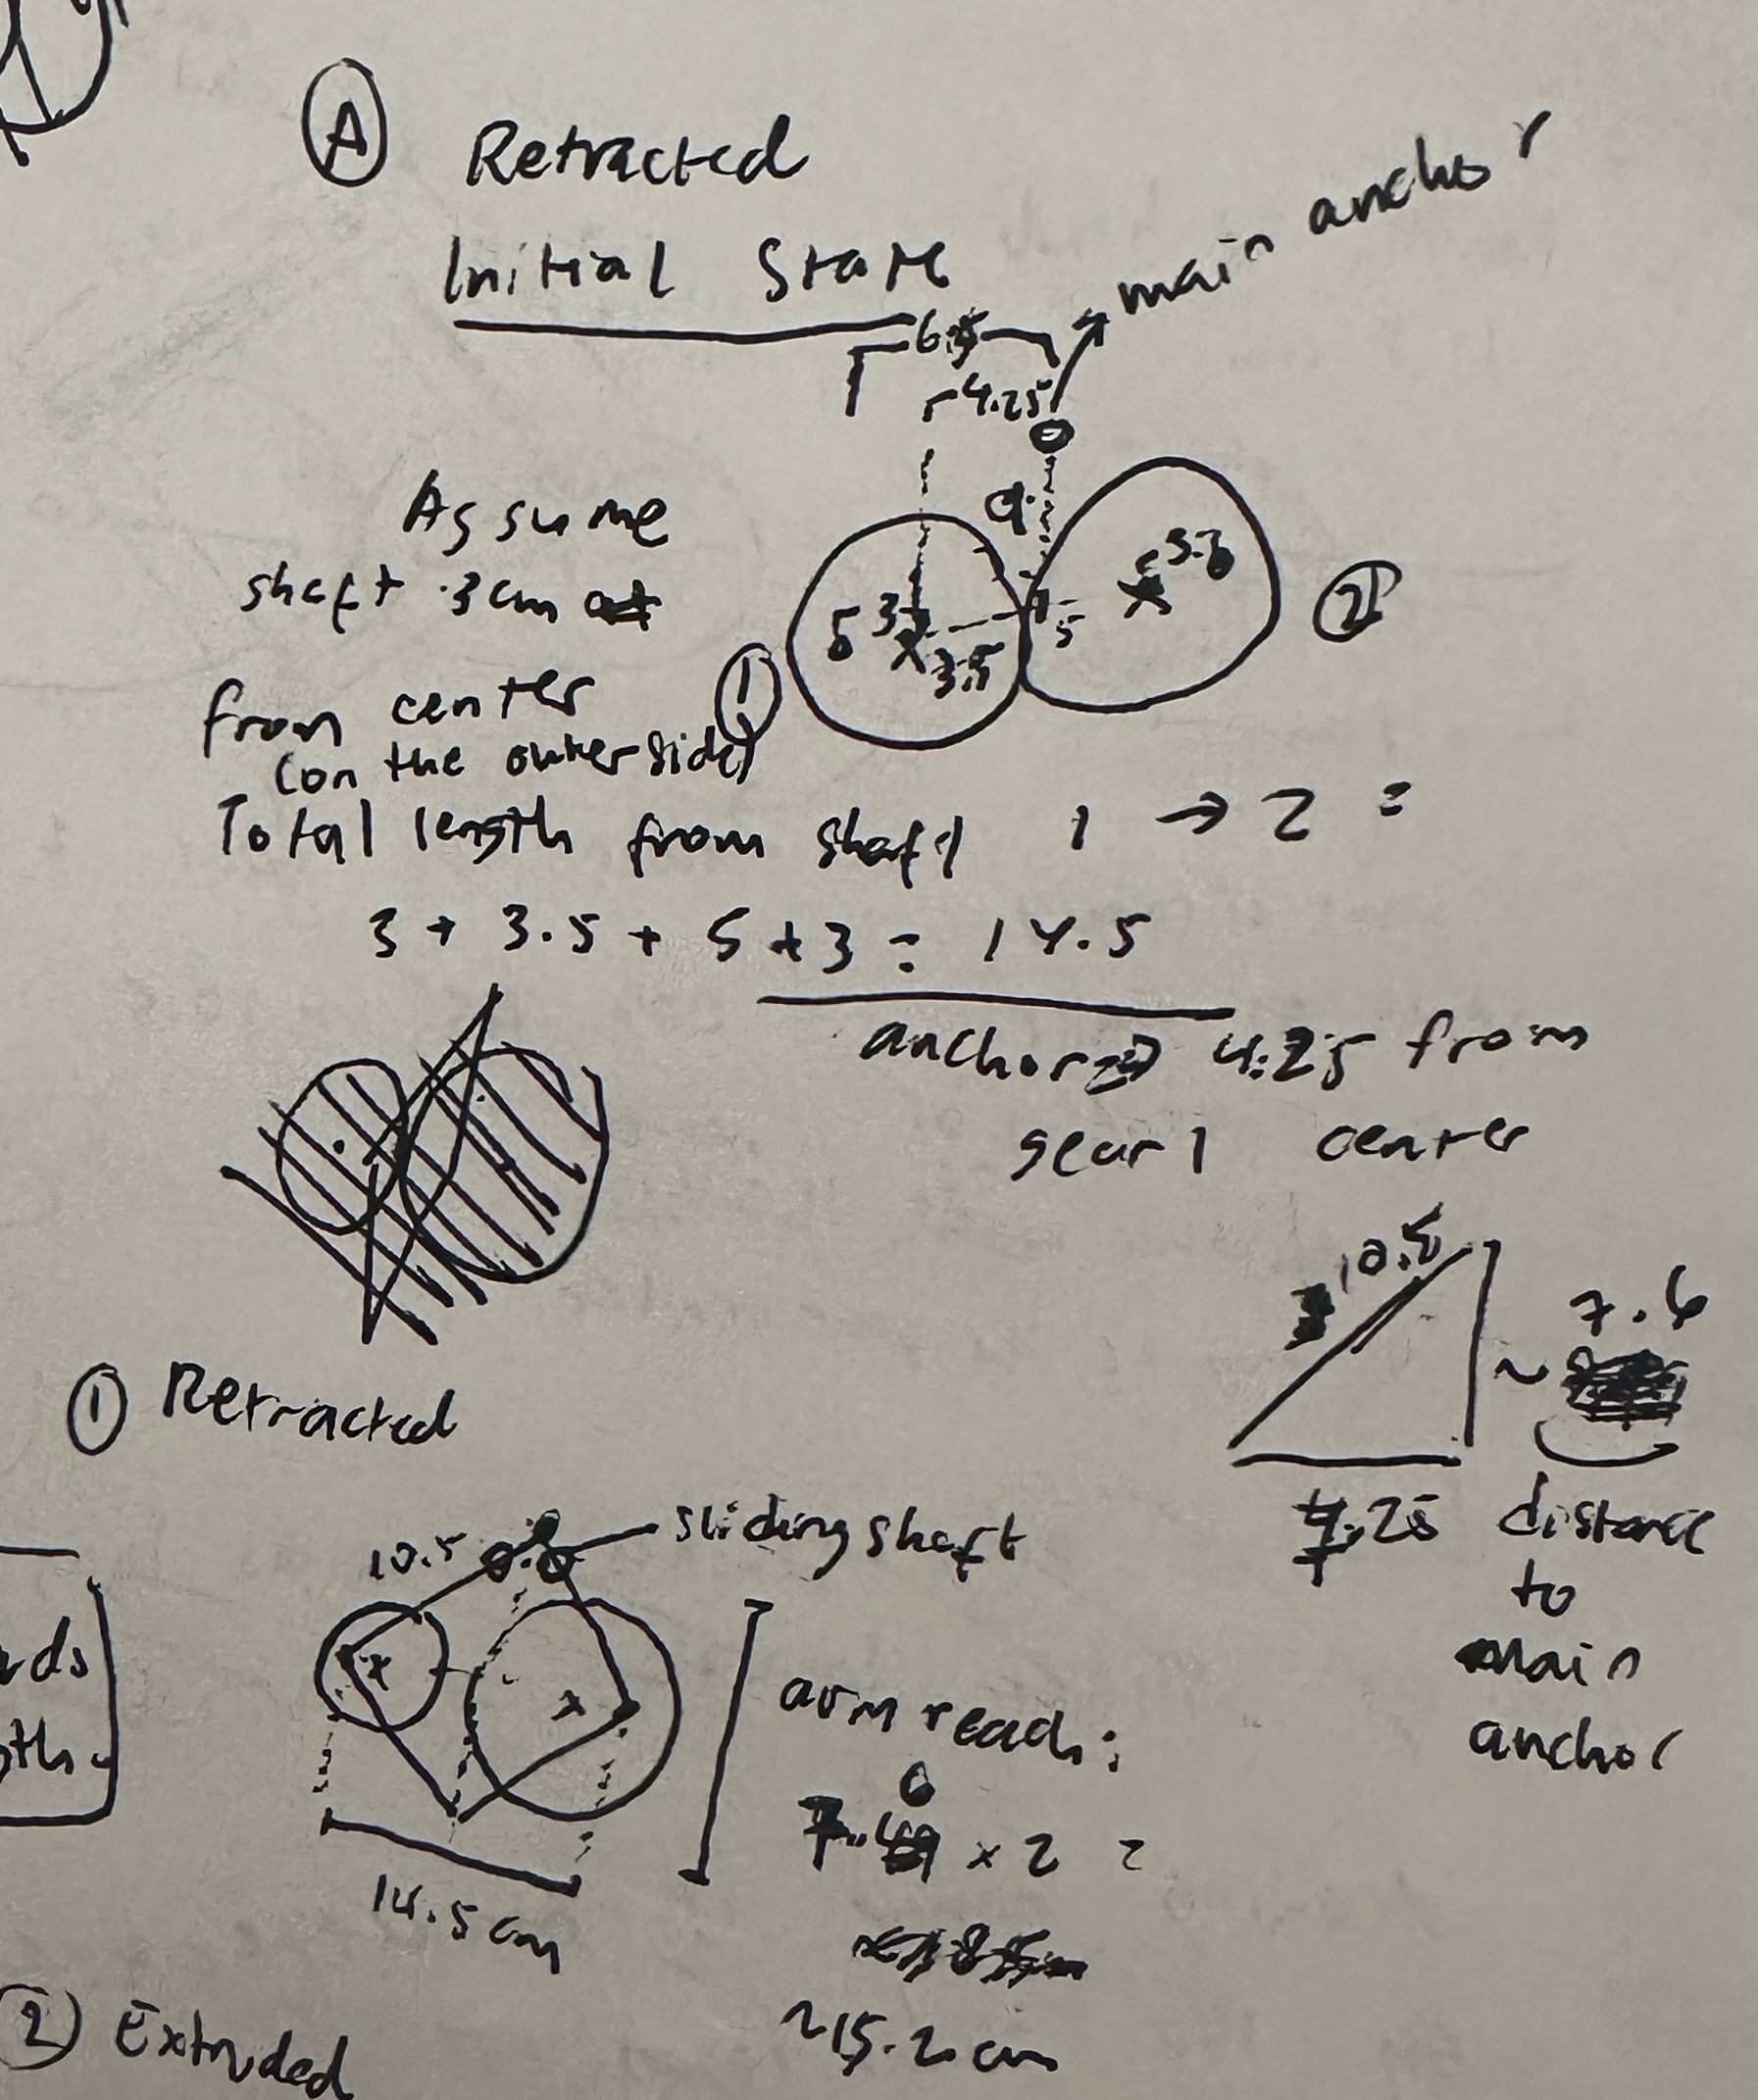 A Retracted
Initial State
main anchor
4.25
9
Assume
shaft .3cm
from center
(on the outer side)
3.5
5
1
2
Total length from shaft 1 → 2 =
3 + 3.5 + 5 + 3 = 14.5
anchor → 4.25 from
gear 1 center
10.5
7.6
~
7.25
distance
to
main
anchor
1 Retracted
10.5
sliding shaft
arm reach:
7.6 x 2 =
~15.2 cm
14.5 cm
2 Extruded